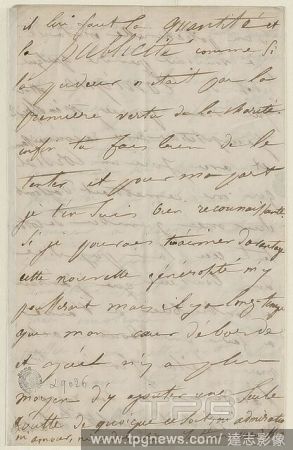 il lui faut la quantité et
la publicité comme si
la pudeur n'était pas la
première vertu de la charité
enfin tu fais bien de le
tenter et pour ma part
je t'en suis bien reconnaissante
Si je pouvais t'aimer davantage
cette nouvelle générosité m'y
mais il y a longtemps
que mon cœur déborde
et qu'il n'y a plus
moyen d'y ajouter une seule
goutte de quoi que ce soit
29026
TPG
www.tpgnews.com / 達志影像